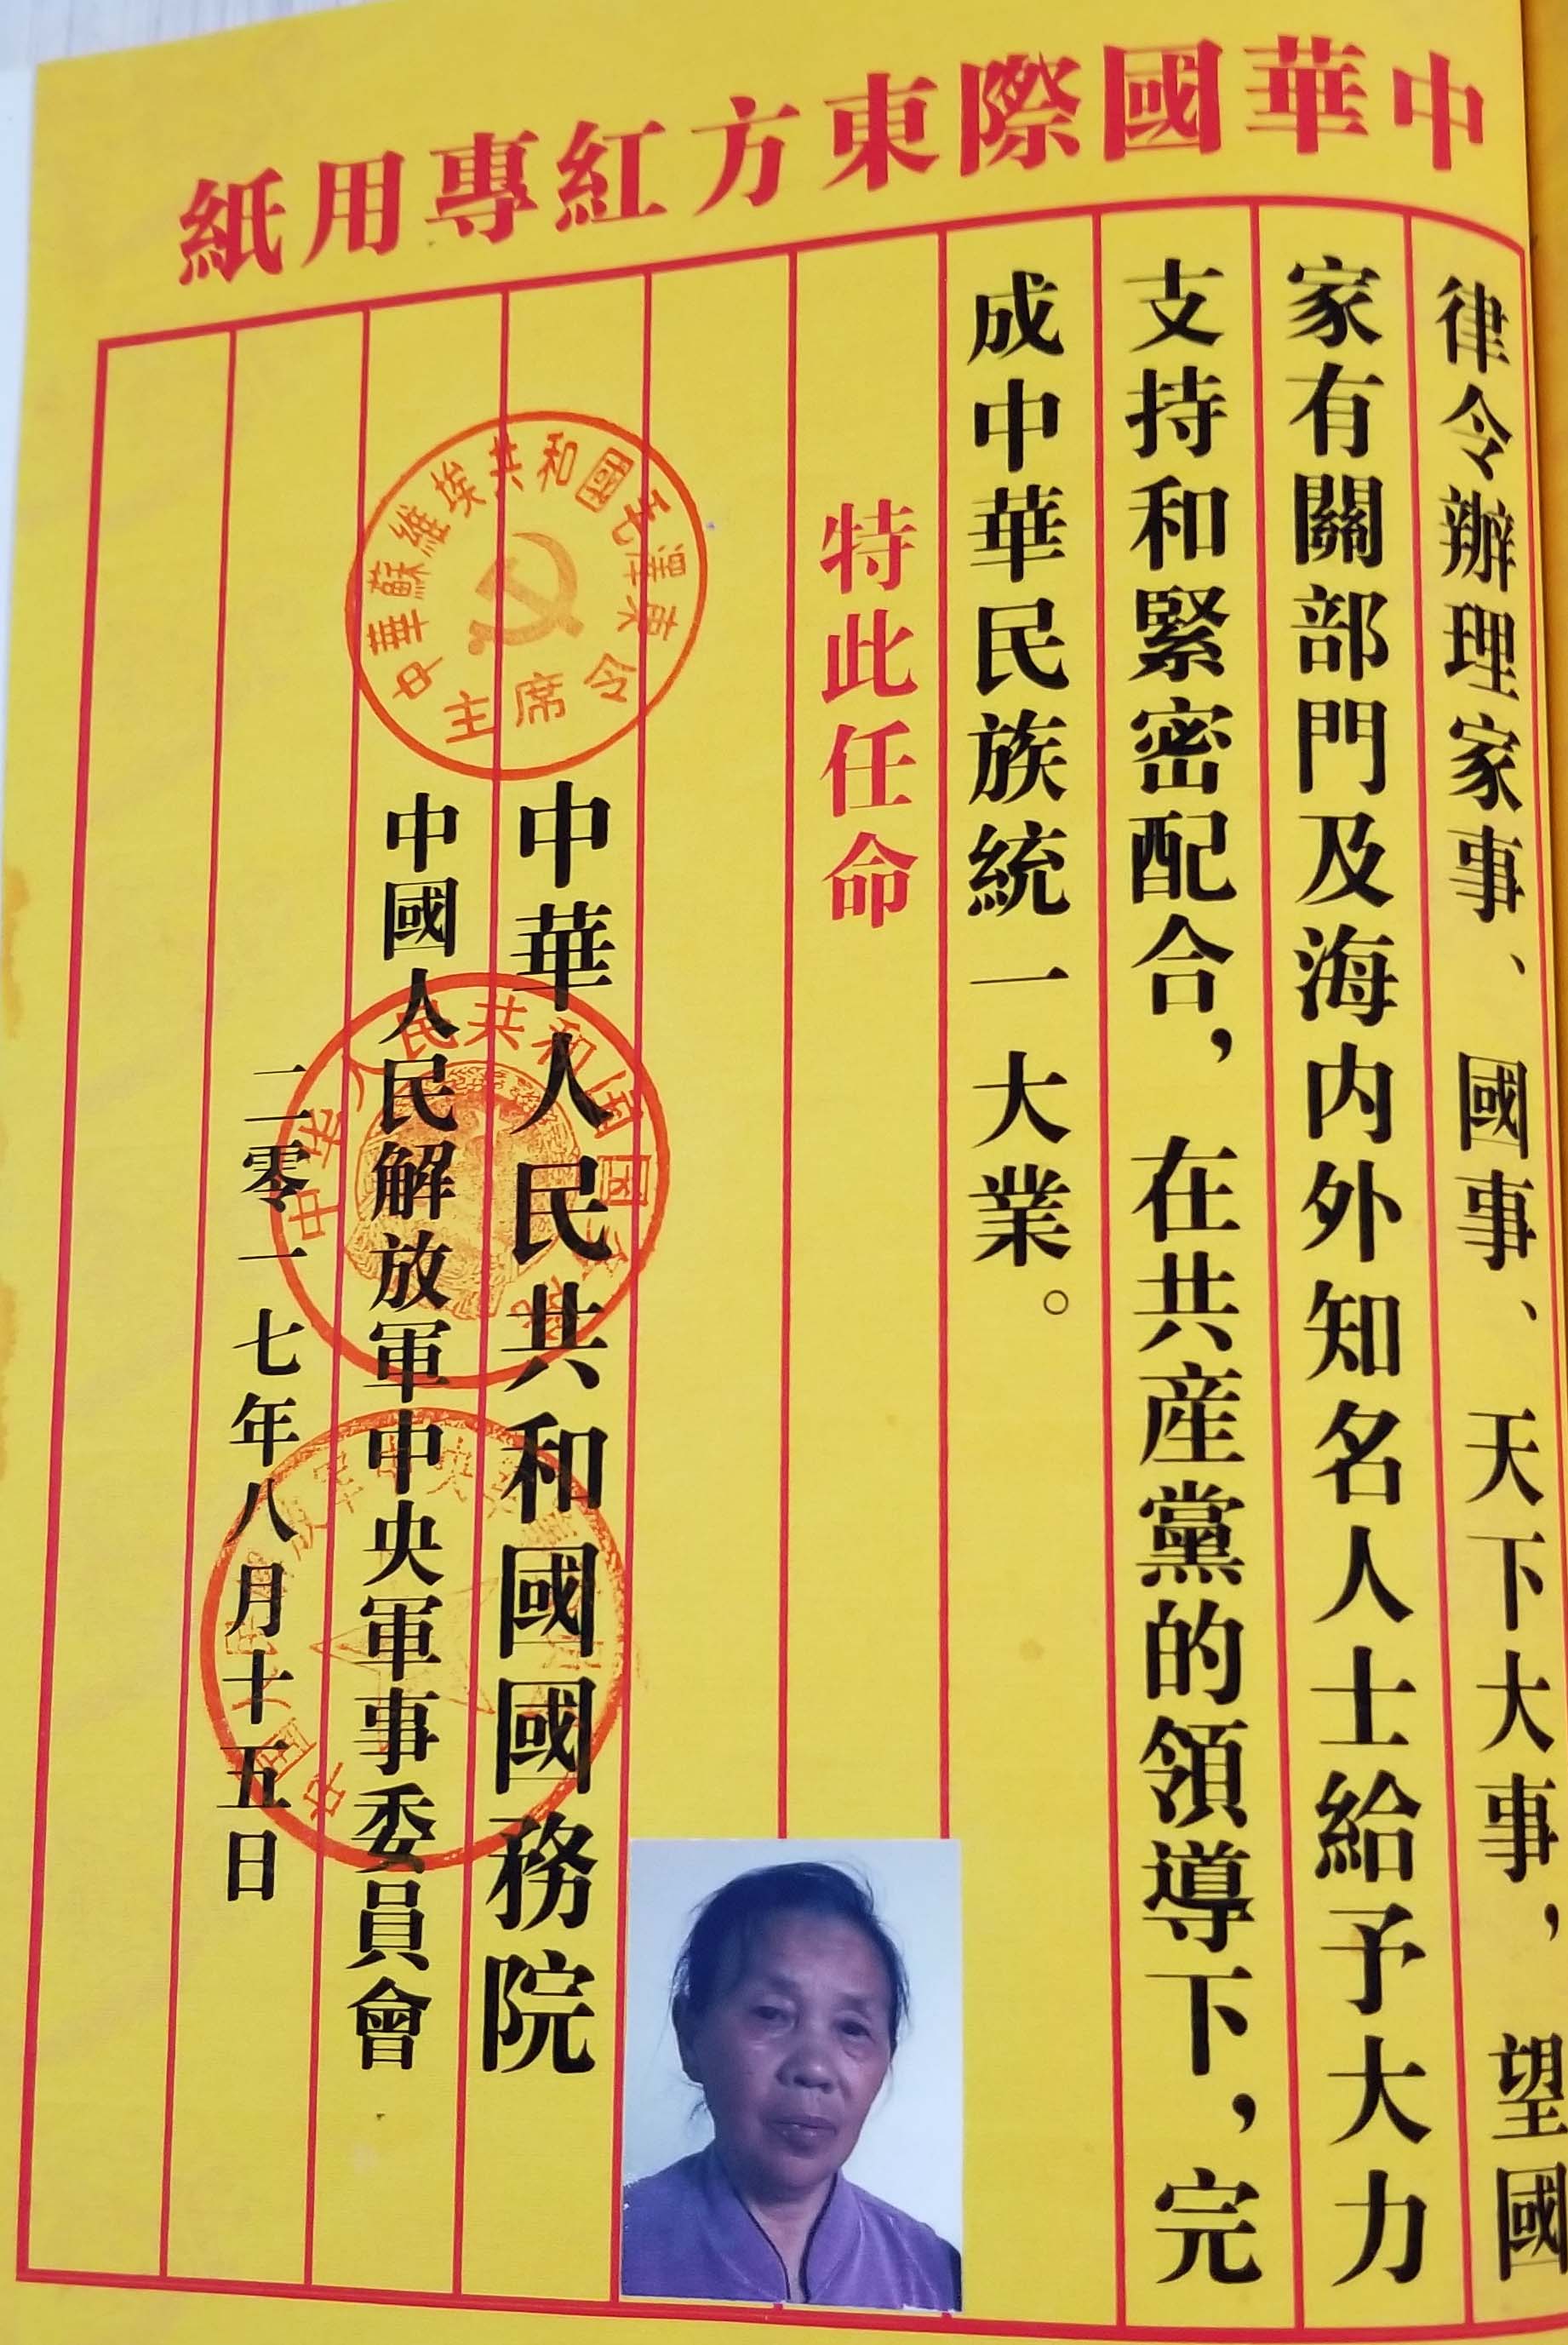 中華國際東方紅專用紙
律令辦理家事、國事、天下大事，望國
家有關部門及海内外知名人士給予大力
支持和緊密配合，在共産黨的領導下，完
成中華民族統一大業。
特此任命
中華人民共和國國務院
中國人民解放軍中央軍事委員會
二零一七年八月十五日
中華蘇維埃共和國毛澤東
主席令
中华人民共和國國务院